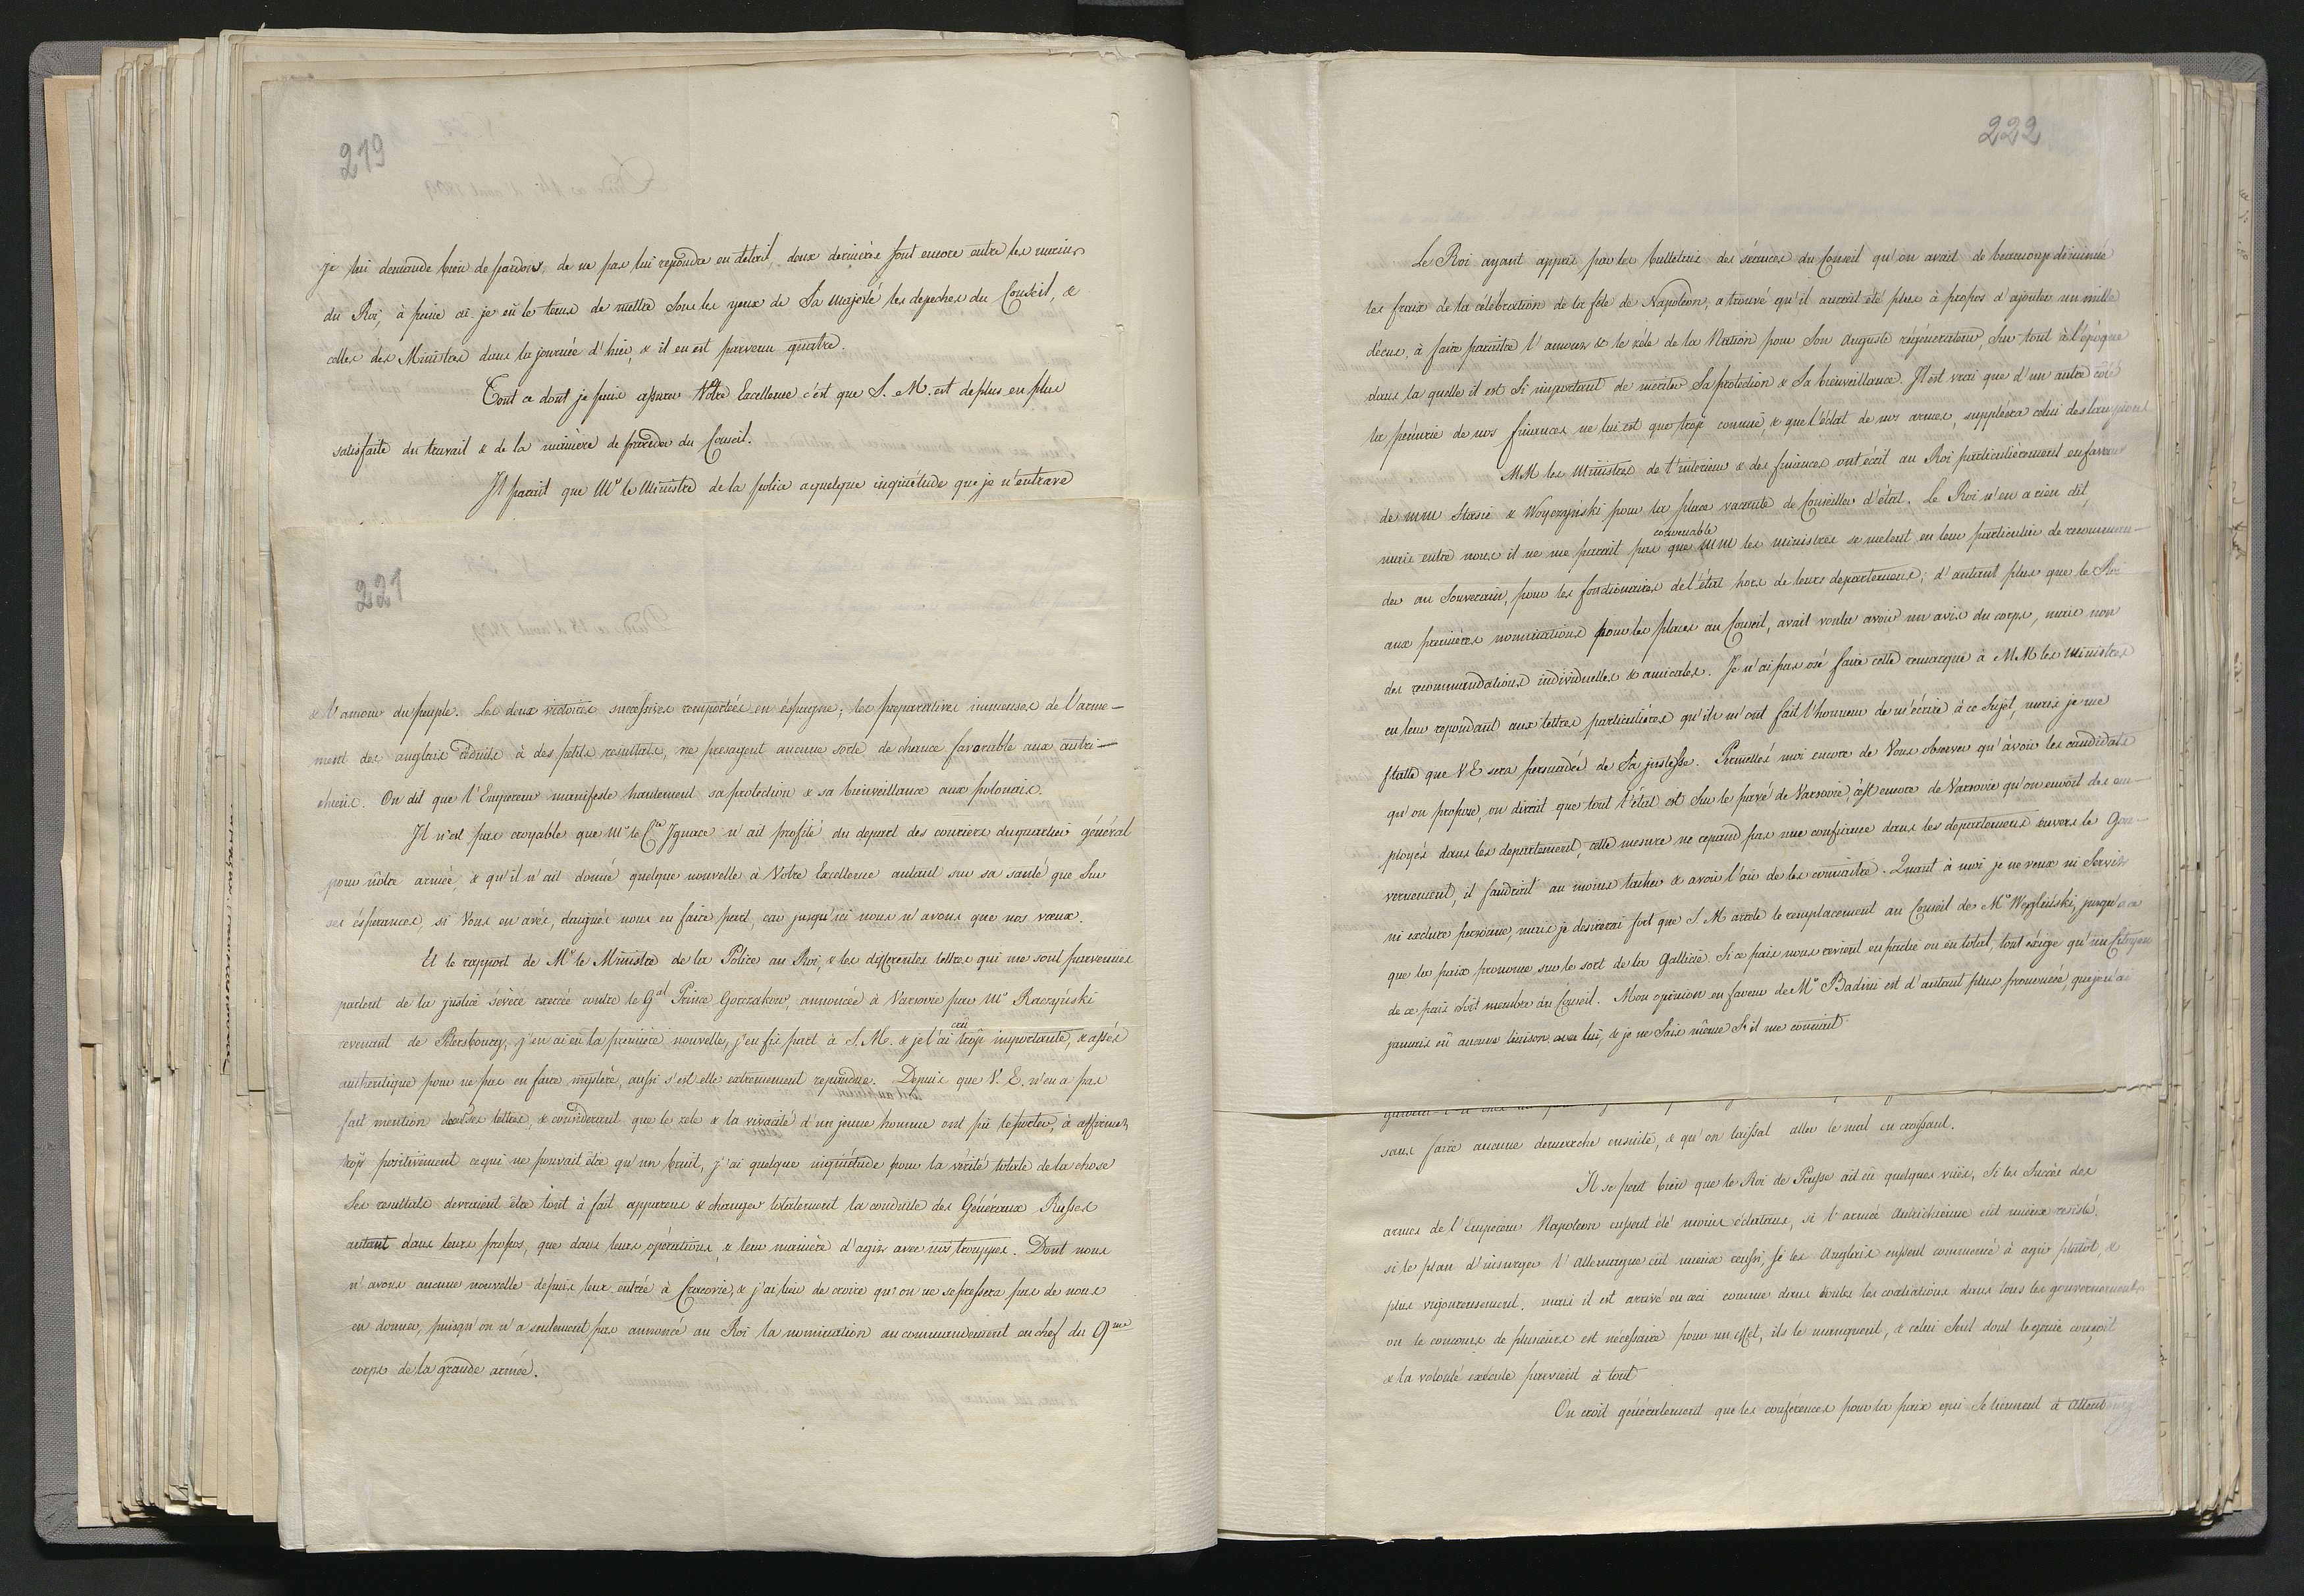 219
Je lui demande bien de pardons, de ne pas lui repondre en detail, deux dernières sont encore entre les mains
du Roi, à peine ai-je eü le tems de mettre sous les yeux de Sa Majesté les depeches du Conseil, &
celles des Ministres dans la journée d'hier, & il en est parvenu quatre.
Tout ce dont je puis assurer Votre Excellence c'est que S. M. est de plus en plus
satisfaite du travail & de la manière de proceder du Conseil.
Il parait que Mr le Ministre de la police a quelque inquiétude que je n'entrave
221
& l'amour du peuple. Les deux victoires successives remportées en éspagne; les preparatives immenses de l'arme-
ment des anglais réduits à des petits resultats, ne presagent aucune sorte de chance favorable aux autri-
chiens. On dit que l'Empereur manifeste hautement sa protection & sa bienveillance aux polonais.
Il n'est pas croyable que Mr le Cte Ignace n'ait profité du depart des couriers du quartier général
pour nôtre armée, & qu'il n'ait donné quelque nouvelle à Votre Excellence autant sur sa santé que sur
ses éspérances, si Vous en avés, daignés nous en faire part, car jusqu'ici nous n'avons que nos vœux.
Et le rapport de Mr le Ministre de la Police au Roi, & les differentes lettres qui me sont parvenües
parlent de la justice sévère exercée contre le Gal Prince Gorczakow, annoncée à Varsovie par Mr Raczyński
revenant de Petersbourg, j'en ai eü la première nouvelle, j'en fis part à S. M. & je l'ai crü trop importante, & assés
authentique pour ne pas en faire mystère, aussi s'est elle extremement repandue. Depuis que V. E. n'en a pas
fait mention dans ses lettres, & considerant que le zele & la vivacité d'un jeune homme ont pü le porter, à affirmer
trop positivement ce qui ne pouvait être qu'un bruit, j'ai quelque inquiétude pour la vérité totale de la chose
Les resultats devraient être tout à fait apparens & changer totalement la conduite des Généraux Russes
autant dans leurs propos, que dans leurs opérations, & leur manière d'agir avec nos trouppes. Dont nous
n'avons aucune nouvelle depuis leur entrée à Cracovie, & j'ai lieu de croire qu'on ne se pressera pas de nous
en donner, puisqu'on n'a seulement pas annoncé au Roi la nomination au commandement en chef du 9me
corps de la grande armée.
222
Le Roi ayant appris par les bulletins des séances du Conseil qu'on avait de beaucoup diminué
les fraix de la célébration de la fête de Napoléon, a trouvé qu'il aurait été plus à propos d'ajouter un mille
d'écus, à faire paraitre l'amour & le zéle de la Nation pour Son Auguste régénérateur, Sur tout à l'époque
dans la quelle il est si important de meriter Sa protection & Sa bienveillance. Il est vrai que d'un autre coté
la penurie de nos finances ne lui est que trop connuë, & que l'éclat de nos armes, suppléera celui des lampions
MM les Ministres de l'interieur & des finances ont écrit au Roi particulièrement en faveur
de MM Stasic & Woyczyński pour la place vacante de Conseiller d'état. Le Roi n'en a rien dit,
mais entre nous il ne me parait pas convenable que MM les ministres se melent en leur particulier de recomman-
der au Souverain, pour les fonctionaires de l'état hors de leurs departemens; d'autant plus que le Roi
aux premières nominations pour les places au Conseil, avait voulu avoir un avis du corps, mais non
des recommandations individuelles & amicales. Je n'ai pas osé faire cette remarque à MM les Ministres
en leur repondant aux lettres particulières qu'ils m'ont fait l'honneur de m'écrire à ce Sujet, mais je me
flatte que V E sera persuadée de Sa justesse. Permettés moi encore de Vous observer qu'à voir les candidats
qu'on propose, on dirait que tout l'état est Sur le pavé de Varsovie, c'est encore de Varsovie qu'on envoit des em-
ployés dans les departemens, cette mesure ne repand pas une confiance dans les departemens envers le Gou-
vernement, il faudrait au moins tacher & avoir l'air de les connaitre. Quant à moi je ne veux ni Servir
ni exclure personne, mais je desirerai fort que S M arrete le remplacement au Conseil de Mr Węgleński, jusqu'à ce
que la paix prononce sur le sort de la Gallicie. Si ce pais nous revient en partie ou en total, tout éxige qu'un Citoyen
de ce pais soit membre du Conseil. Mon opinion en faveur de Mr Badini est d'autant plus prononcée, que je n'ai
jamais eü aucune liaison avec lui, & je ne Sais même S'il me connait.
sans faire aucune demarche ensuite, & qu'on laissat aller le mal en croissant.
Il se peut bien que le Roi de Prusse ait eü quelques vües, Si les Succès des
armes de l'Empereur Napoleon eussent été moins éclatans, si l'armée Autrichienne eüt mieux resisté,
si le plan d'insurger l'allemagne eüt mieux reussi, si les Anglais eussent commencé à agir plutôt, &
plus vigoureusement. mais il est arrivé en ceci comme dans toutes les coaliations dans tous les gouvernements
ou le concours de plusieurs est nécessaire pour un effet, ils le manquent, & celui Seul dont le genie conçoit
& la volonté exécute parvient à tout
On croit généralement que les conférences pour la paix qui se tiennent à Altenb